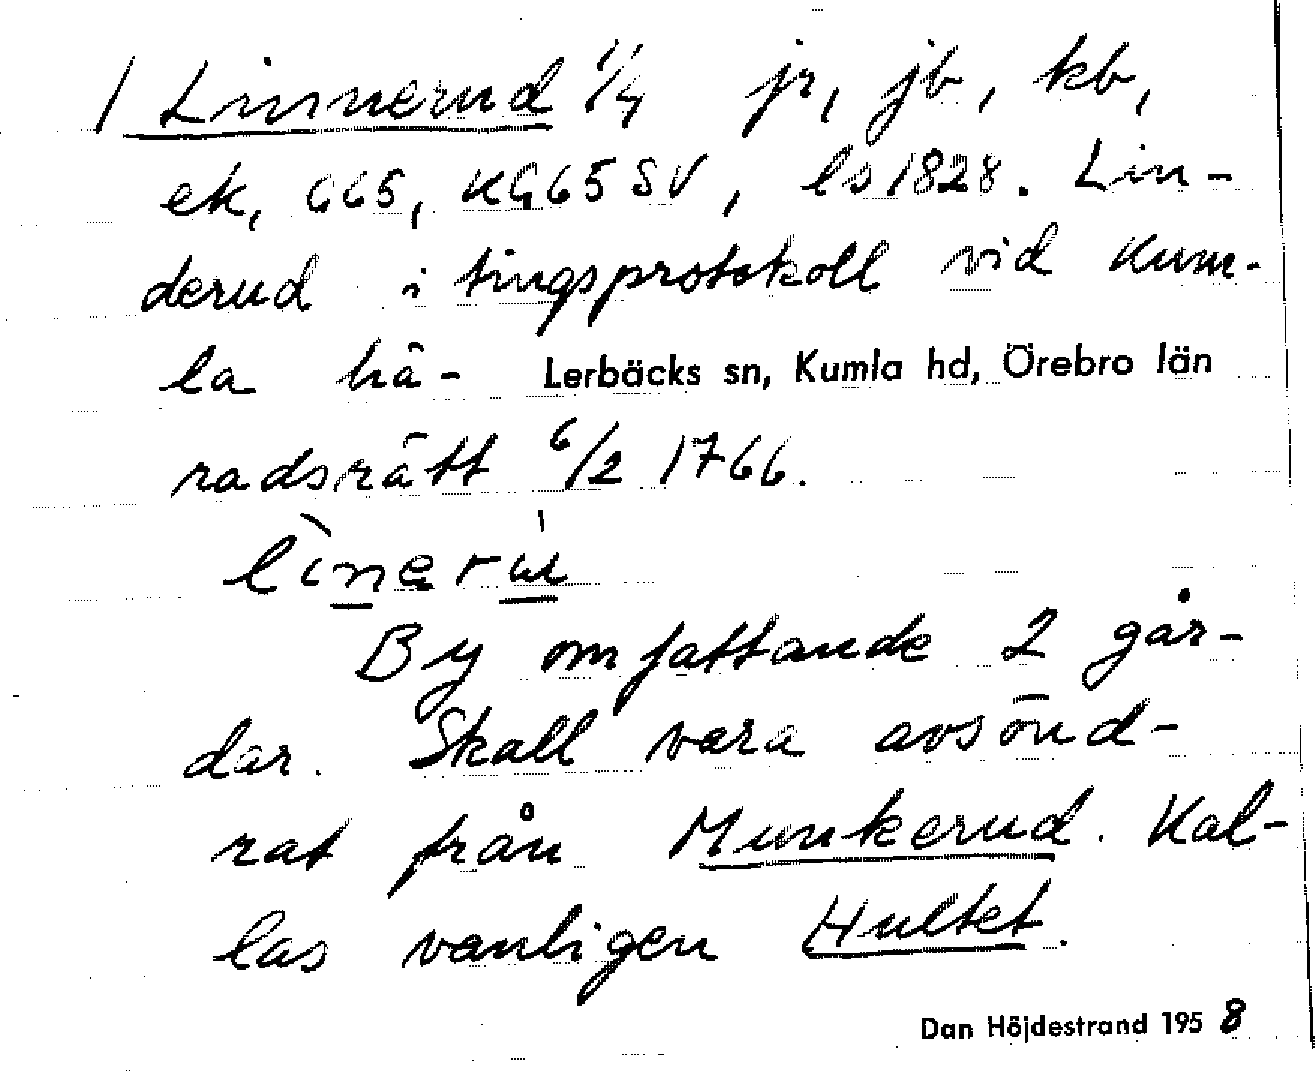 / Linnerud 1/4 jr, jb, kb,
ek, G65, KG65SV, ls 1828. Lin-
derud i tingsprotokoll vid Kum-
la hä- Lerbäcks sn, Kumla hd, Örebro län
radsrätt 6/2 1766.
By omfattande 2 går-
dar. Skall vara avsönd-
rat från Munkerud. Kal-
las vanligen Hultet.
Dan Höjdestrand 1958